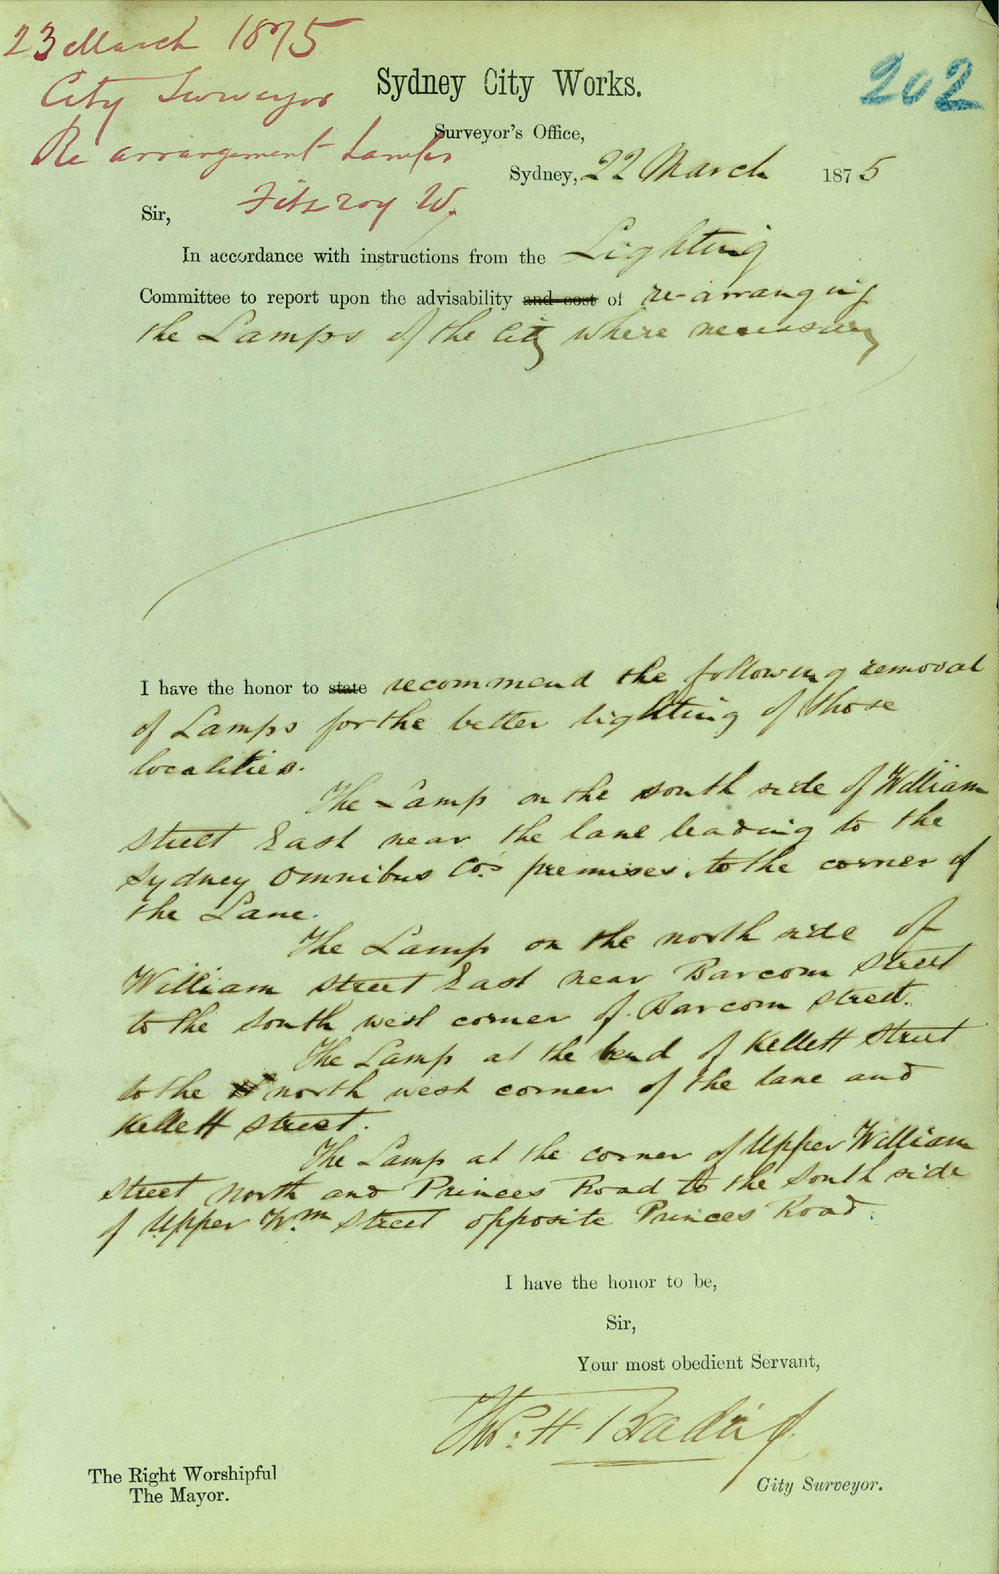 23 March 1875
City Surveyor
Re arrangement Lamps
Fitzroy W.
202
Sydney City Works.
Surveyor's Office,
Sydney, 22 March 1875
Sir,
In accordance with instructions from the Lighting
Committee to report upon the advisability and cost of re-arranging
the Lamps of the City where necessary
I have the honor to state recommend the following removal
of Lamps for the better lighting of those
localities.
The Lamp on the south side of William
street East near the lane leading to the
Sydney Omnibus Co's premises, to the corner of
the Lane.
The Lamp on the north side of
William street East near Barcom Street
to the south west corner of Barcom street.
The Lamp at the bend of Kellett Street
to the north west corner of the lane and
Kellett street.
The Lamp at the corner of Upper William
street North and Princes Road to the South side
of Upper Wm street opposite Princes Road.
I have the honor to be,
Sir,
Your most obedient Servant,
Thos. H.
City Surveyor.
The Right Worshipful
The Mayor.